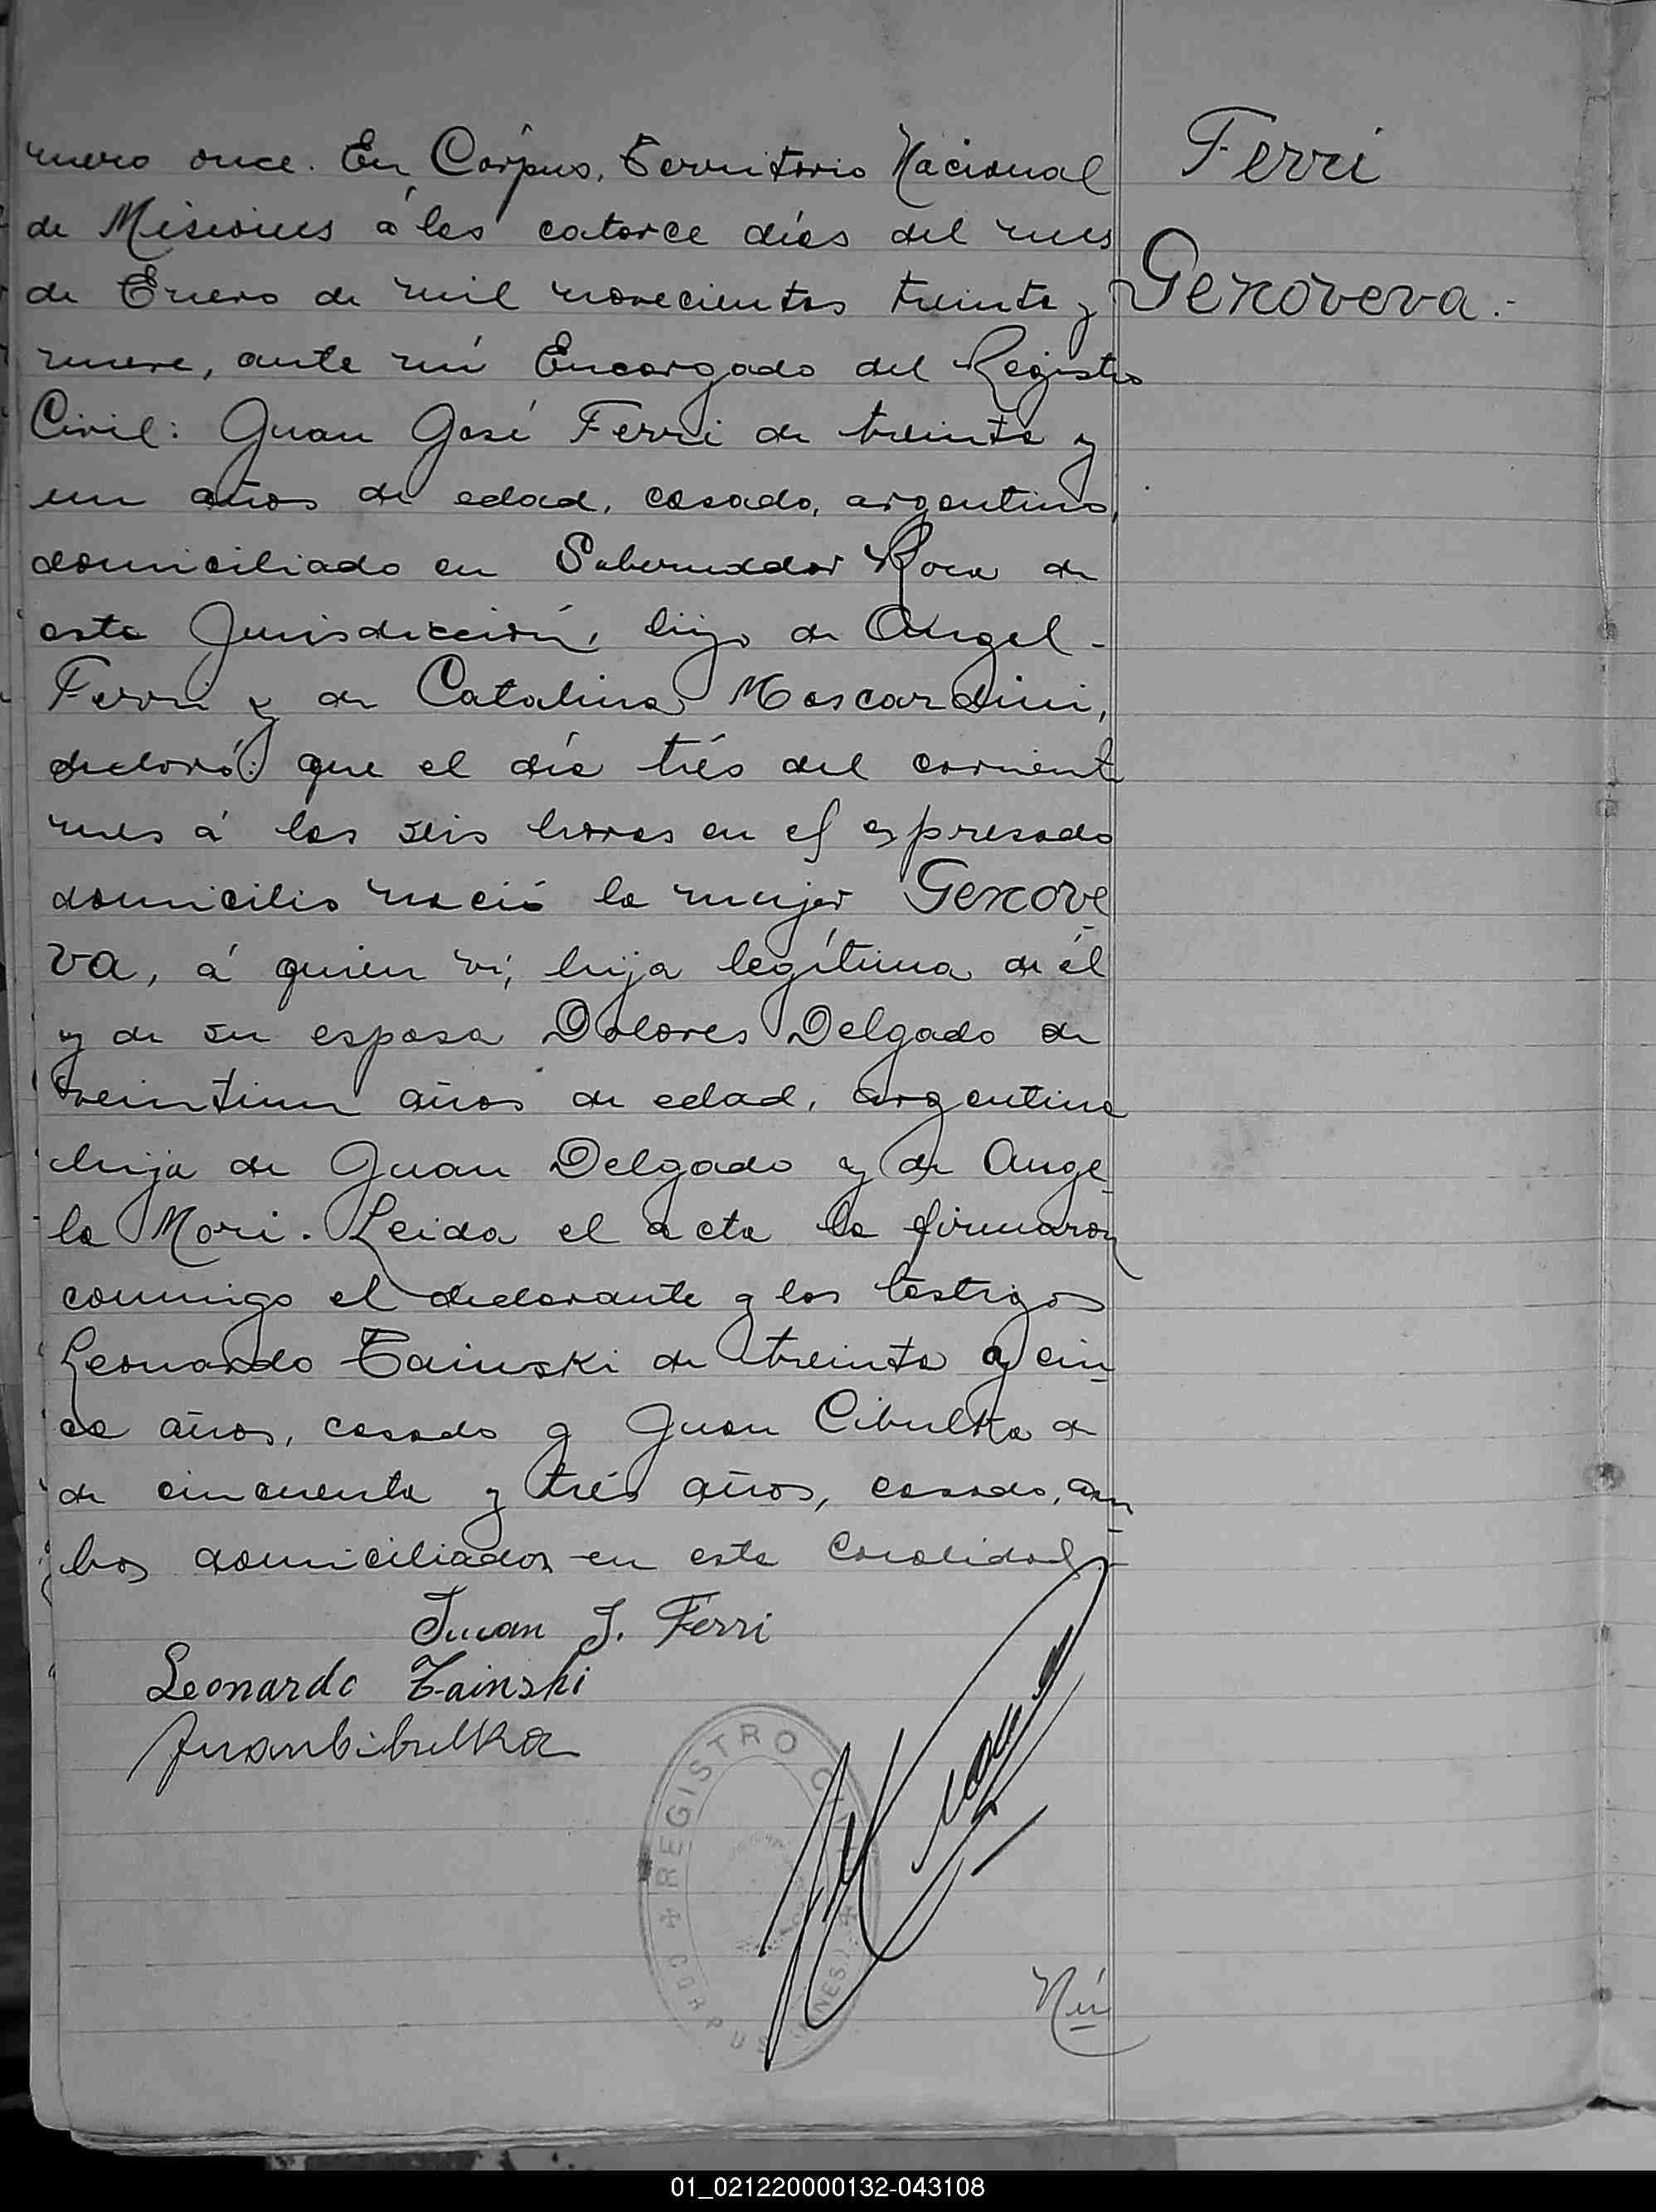 mero once. En Córpus, Territorio Nacional
de Misiones á los catorce días del mes
de Enero de mil novecientos treinta y
nueve, ante mí Encargado del Registro
Civil: Juan José Ferri de treinta y
un años de edad, casado, argentino,
domiciliado en Gobernador Roca de
esta Jurisdicción, hijo de Angel-
Ferri y de Catalina Moscardini,
declaró: que el día trés del corriente
mes á las seis horas en el expresado
domicilio nació la mujer Genove
va, á quien ví, hija legítima de él
y de su esposa Dolores Delgado de
veintiun años de edad, argentina
hija de Juan Delgado y de Ange
la Mori. Leida el acta la firmaron
conmigo el declarante y los testigos
Leonardo Tainski de treinta y cin
co años, casado y Juan Cibulka de
de cincuenta y trés años, casado, am
bos domiciliados en esta localidad.
Juan J. Ferri
Leonardo Tainski
Juan Cibulka
REGISTRO CIVIL
CORPUS
Nú
Ferri
Genoveva.-
01_021220000132-043108